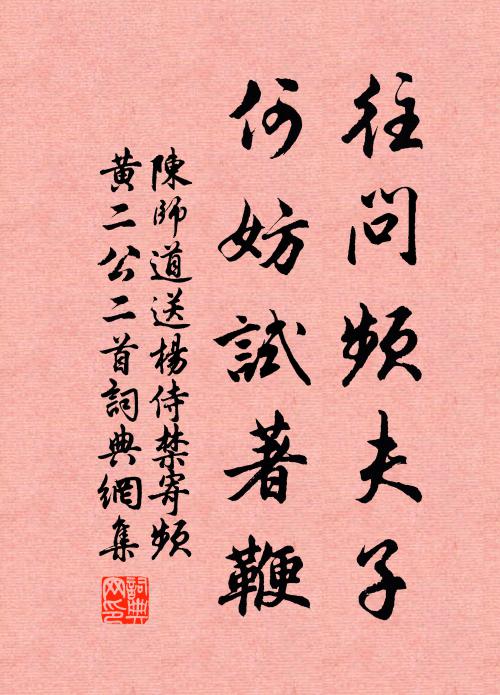 往問頻夫子
何妨試著鞭
陳師道送楊侍禁寄頻
黃二公二首詞典網集
詞典
网印